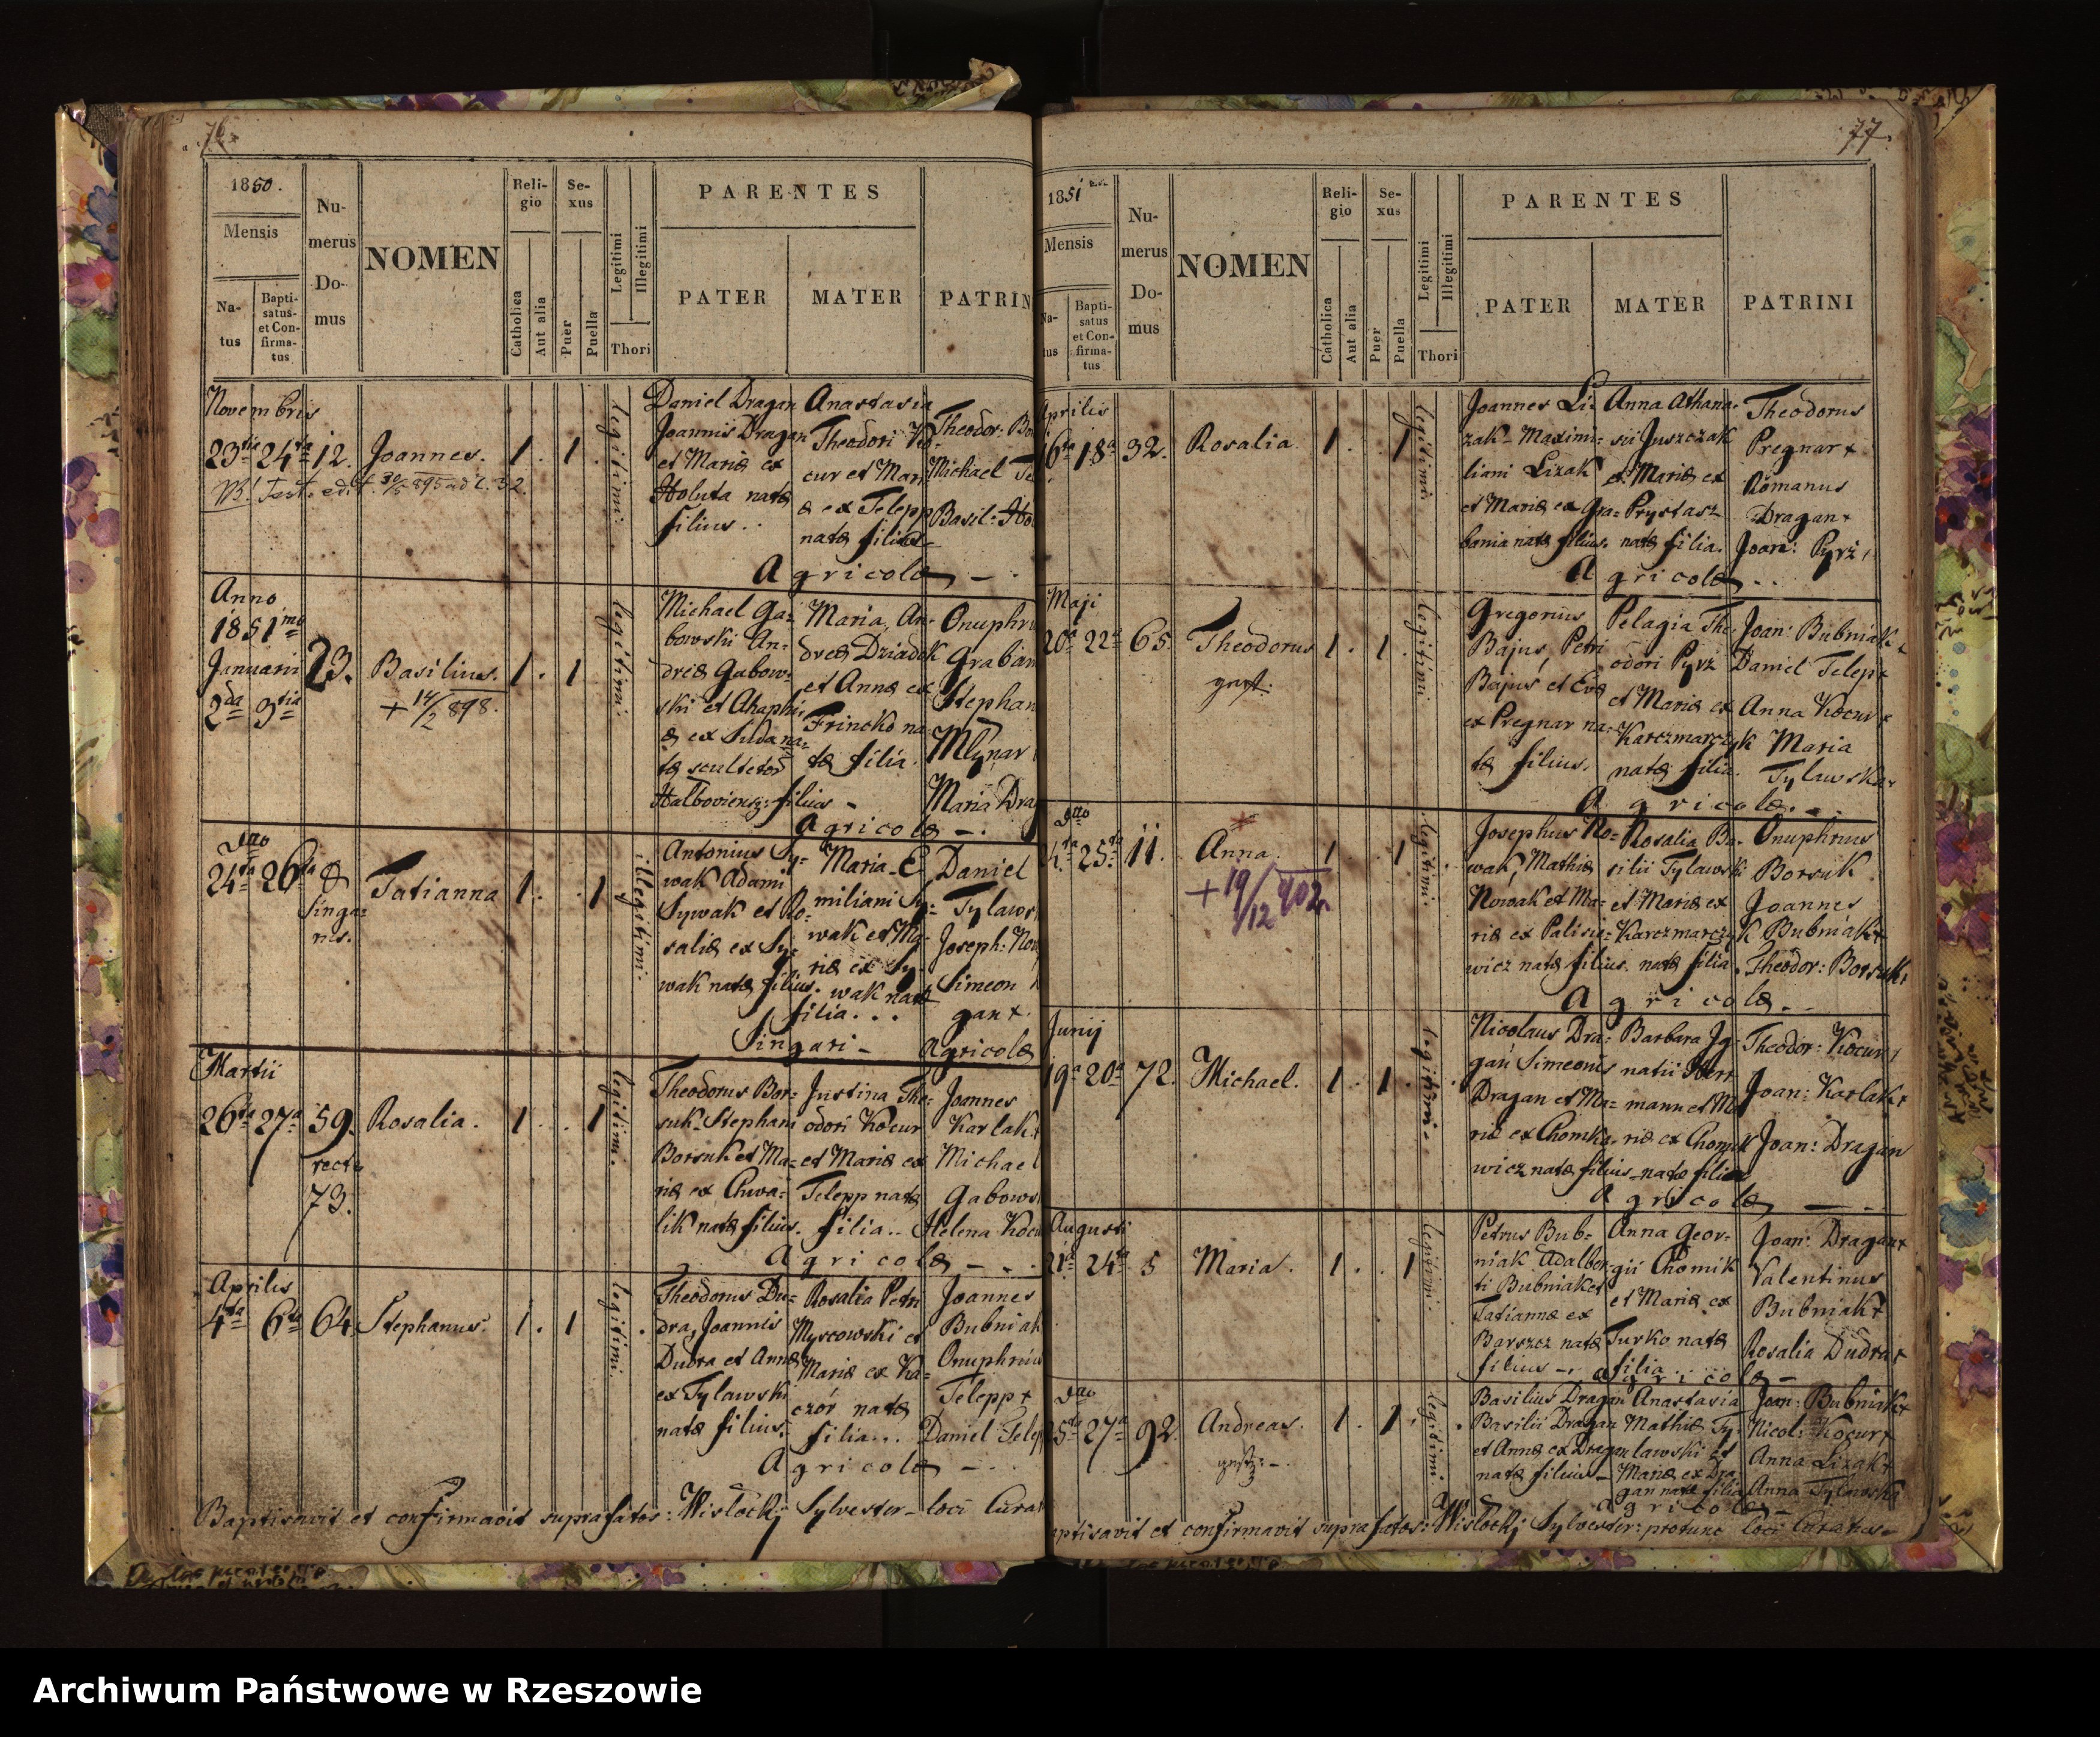 76.
1850.
Mensis
Na-
tus
Bapti-
satus-
et Con-
firma-
tus
Nu-
merus
Do-
mus
NOMEN
Reli-
gio
Catholica
Aut alia
Se-
xus
Puer
Puella
Legitimi
Illegitimi
Thori
PARENTES
PATER
MATER
PATRIN
Novembris
23tia 24ta 12. Joannes. 1. 1
legitimi.
Daniel Dragan
Joannis Dragan
et Mariæ ex
Holuta natæ
filius..
Anastasia
Theodori Ko-
cur et Mari
æ ex Telepp
natæ filia
Theodor: Bo
Michael Te
Basil: Ho
Agricolæ - .
Anno
1851mo
Januarii
2da 3tia
23.
Basilius.
+ 14/2 898.
1. 1
legitimi.
Michael Ga-
bowski An-
driæ Gabow-
ski et Ahaphi
æ ex Suda na-
tæ sculteto
filius -
Maria, An-
dreæ Dziadek
et Annæ ex
Frincko na
tæ filia.
Onuphri
Graban
Stephan
Mlynar
Maria Drag
Agricolæ -.
dtto
24ta 26ta
Singa-
ris.
Tatianna
1. 1
illegitimi.
Antonius Sy-
wak Adami
Sywak et Ro-
saliæ ex Sy-
wak natæ filius.
Maria E-
miliani Sy-
wak et Ma-
riæ ex Sy-
wak natæ
filia...
Daniel
Tylaws
Joseph: Now
Simeon
gan+.
Singari - Agricolæ
Martii
26ta 27a 59. Rosalia. 1. . 1
recte
73.
legitimi.
Theodorus Bor-
suk Stephani
Borsuk et Ma-
riæ ex Chwa-
lik natæ filius.
Justina The-
odori Kocur
et Mariæ ex
Telepp natæ
filia..
Joannes
Karlak+
Michael
Gabows
Helena Kocu
Agricolæ - - .
Aprilis
4ta 6ta 64. Stephanus. 1. 1
legitimi.
Theodorus Du-
dra, Joannis
Dudra et Annæ
ex Tylawski
natæ filius.
Rosalia Petri
Myscowski et
Mariæ ex Ka-
czór natæ
filia...
Joannes
Bubniak
Onuphrius
Telepp+
Daniel Telep
Agricolæ -
Baptisavit et confirmavit suprafatos: Wislocki Sylvester - loci Curat
77.
1851
Mensis
Na-
tus
Bapti-
satus
et Con-
firma-
tus
Nu-
merus
Do-
mus
NOMEN
Reli-
gio
Catholica
Aut alia
Se-
xus
Puer
Puella
Legitimi
Illegitimi
Thori
PARENTES
PATER
MATER
PATRINI
Aprilis
16ta 18a 32. Rosalia. 1. 1
legitimi
Joannes Li-
zak - Maximi-
liani Lizak
et Mariæ ex Gra-
bania natæ filius.
Anna Athana-
sii Juszczak
et Mariæ ex
Prystasz
natæ filia.
Theodorus
Pregnar+
Romanus
Dragan+
Joan: Pyrz+
Agricolæ..
Maji
20a 22a 65. Theodorus 1. 1.
legitimi.
Gregorius
Bajus, Petri
Bajus et Evæ
ex Pregnar na-
tæ filius.
Pelagia The-
odori Pyrz
et Mariæ ex
Karczmarczyk
natæ filia.
Joan: Bubniak+
Daniel Telep+
Anna Kocur+
Maria
Tylawska+
Agricolæ. -
dtto
25ta 11. Anna. 1. 1
+ 19/12 902
legitimi.
Josephus No-
wak, Mathiæ
Nowak et Ma-
riæ ex Palisie-
wicz natæ filius.
Rosalia Ba-
silii Tylawski
et Mariæ ex
Karczmarczyk
natæ filia.
Onuphrius
Borsuk
Joannes
Bubniak+
Theodor: Borsuk+
Agricolæ..
Junij
19a 20a 72. Michael. 1. 1.
legitimi.
Nicolaus Dra-
gan Simeonis
Dragan et Ma-
riæ ex Chomka-
wicz natæ filius
Barbara Ig-
natii Herr
mann et Ma
riæ ex Chomik
nata filia
Theodor: Kocur+
Joan: Karlak+
Joan: Dragan
Agricolæ - .
Augusti
21a 24ta 5 Maria. 1. . 1
legitimi
Petrus Bub-
niak Adalber-
ti Bubniak et
Tatiannæ ex
Barszcz natæ
filius -.
Anna Geor-
gii Chomik
et Mariæ ex
Turko natæ
filia
Joan: Dragan+
Valentinus
Bubniak+
Rosalia Dudra+
agricolæ -
dtto
25ta 27a 92. Andreas. 1. 1.
legitimi
Basilius Dragan
Basilii Dragan
et Annæ ex Dragan
natæ filius -
Anastasia
Mathiæ Ty-
lawski et
Mariæ ex Dra
gan natæ filia
Joan: Bubniak+
Nicol: Kocur+
Anna Lizak+
Anna Tylawska
agricolæ -
Baptisavit et confirmavit suprafatos: Wislocki Sylvester: protunc loci Curatus -
Archiwum Państwowe w Rzeszowie